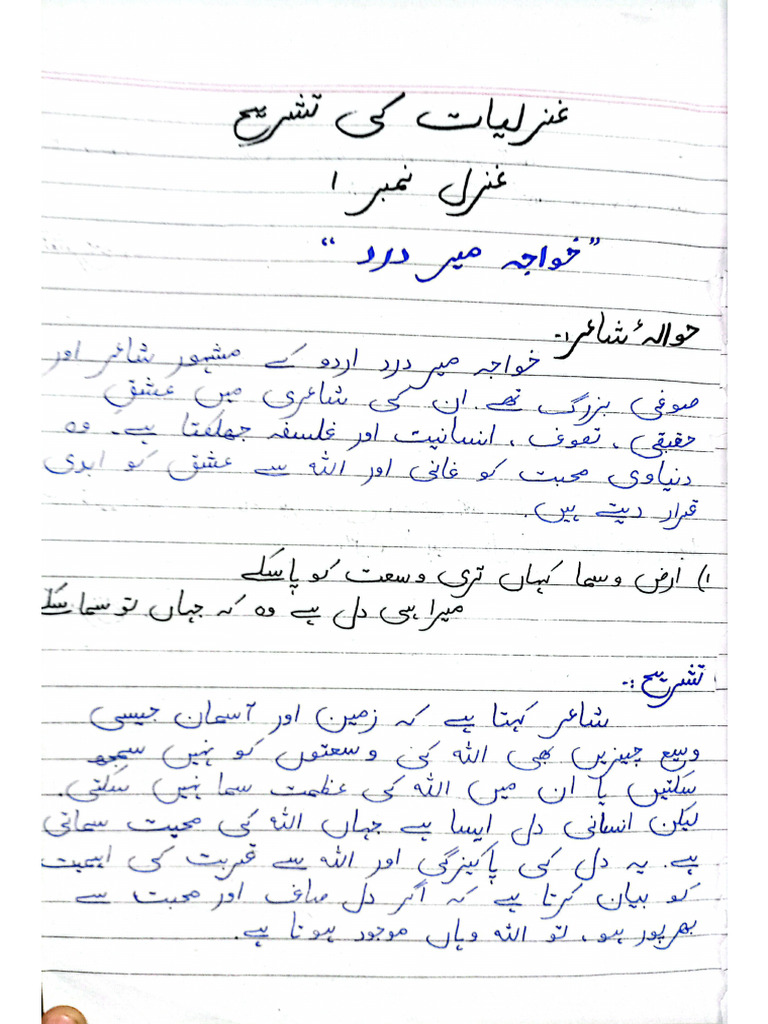 غزلیات کی تشریح
غزل نمبر ۱
"خواجہ میر درد"
حوالۂ شاعر:-
خواجہ میر درد اردو کے مشہور شاعر اور
صوفی بزرگ تھے. ان کی شاعری میں عشقِ
حقیقی، تصوف، انسانیت اور فلسفہ جھلکتا ہے۔ وہ
دنیاوی محبت کو فانی اور اللہ سے عشق کو ابدی
قرار دیتے ہیں.
۱) ارض و سما کہاں تری وسعت کو پا سکے
میرا ہی دل ہے وہ کہ جہاں تو سما سکے
تشریح:-
شاعر کہتا ہے کہ زمین اور آسمان جیسی
وسیع چیزیں بھی اللہ کی وسعتوں کو نہیں سمجھ
سکتیں یا ان میں اللہ کی عظمت سما نہیں سکتی.
لیکن انسانی دل ایسا ہے جہاں اللہ کی محبت سماتی
ہے. یہ دل کی پاکیزگی اور اللہ سے قربت کی اہمیت
کو بیان کرتا ہے کہ اگر دل صاف اور محبت سے
بھرپور ہو، تو اللہ وہاں موجود ہوتا ہے.